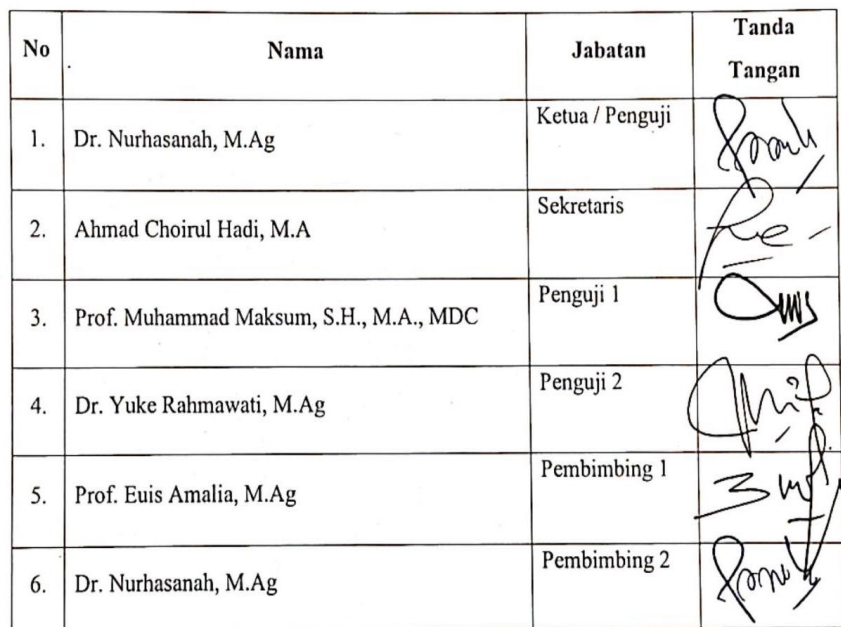 No Nama Jabatan Tanda
Tangan
1. Dr. Nurhasanah, M.Ag Ketua / Penguji
2. Ahmad Choirul Hadi, M.A Sekretaris
3. Prof. Muhammad Maksum, S.H., M.A., MDC Penguji 1
4. Dr. Yuke Rahmawati, M.Ag Penguji 2
5. Prof. Euis Amalia, M.Ag Pembimbing 1
6. Dr. Nurhasanah, M.Ag Pembimbing 2